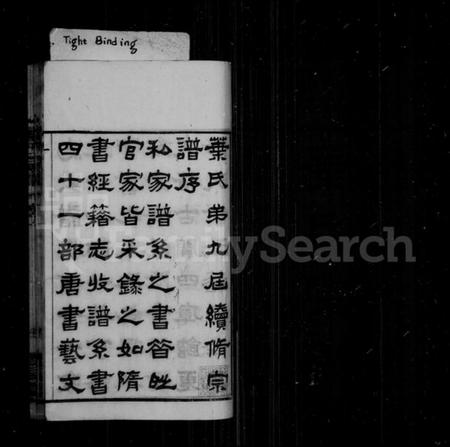 Tight Binding
葉氏弟九屆續脩宗
譜序
私家譜系之書昔時
官家皆采錄之如隋
書經籍志收譜系書
四十一部唐書藝文
FamilySearch